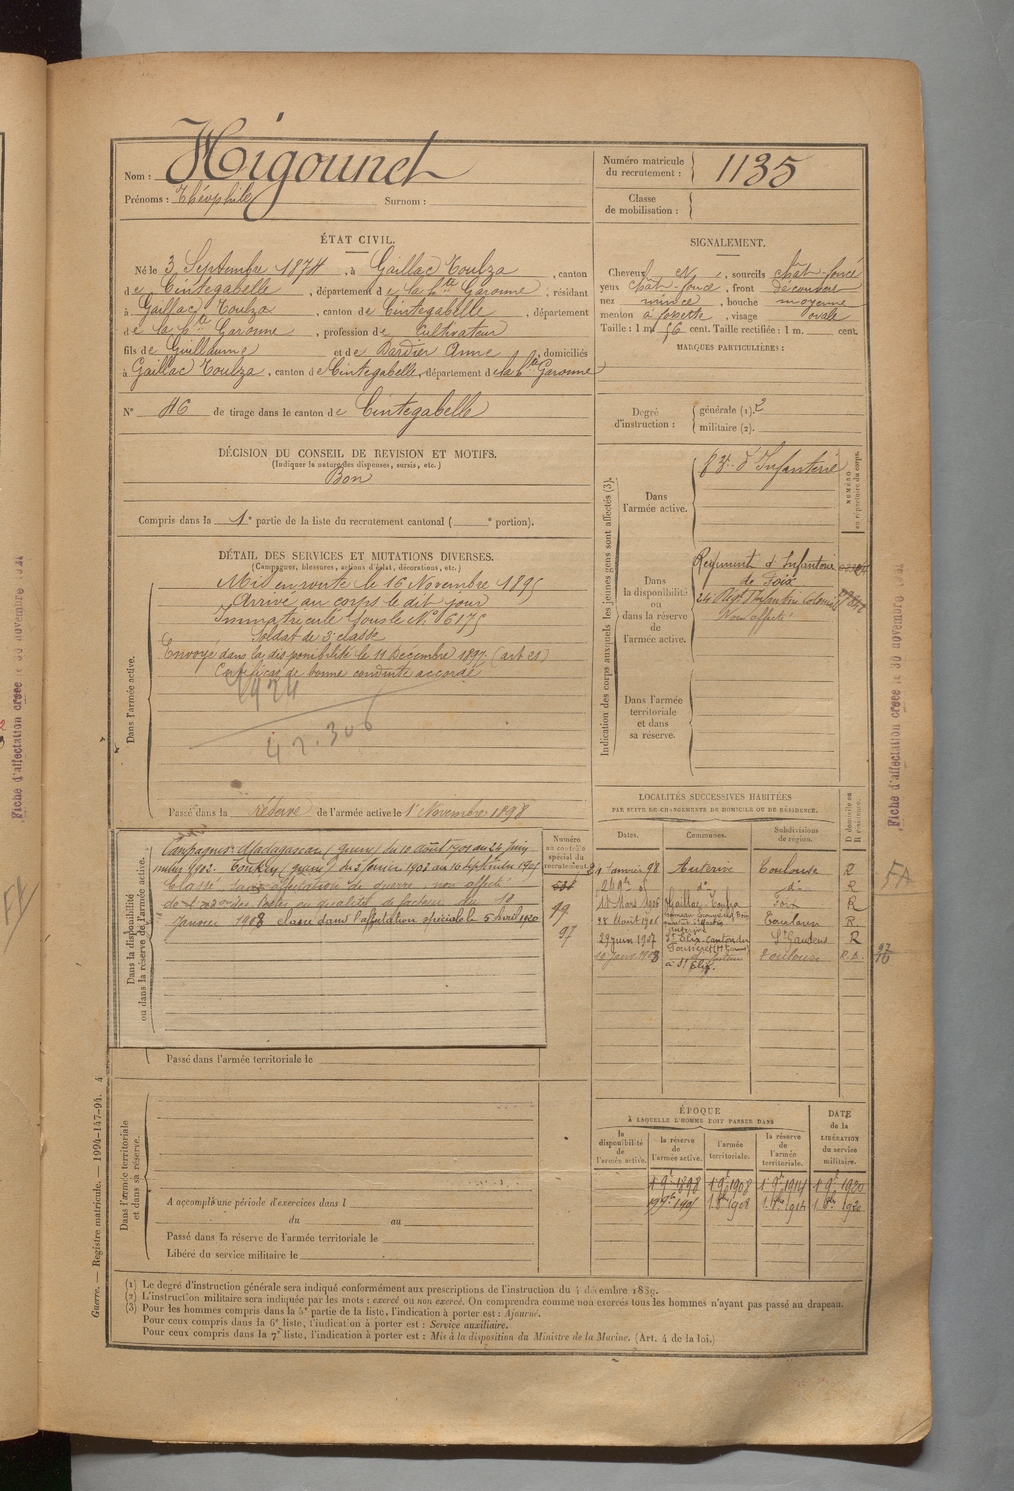 Nom : Higounet
Prénoms : Théophile Surnom :
Numéro matricule du recrutement : 1135
Classe de mobilisation :
ÉTAT CIVIL.
Né le 3 Septembre 1874, à Gaillac Toulza, canton
de Cintegabelle, département de la hte Garonne, résidant
à Gaillac Toulza, canton de Cintegabelle, département
de la hte Garonne, profession de Cultivateur
fils de Guillaume et de Dardier Anne, domiciliés
à Gaillac Toulza, canton de Cintegabelle, département de la hte Garonne
N° 46 de tirage dans le canton de Cintegabelle
SIGNALEMENT.
Cheveux N, sourcils chât-foncé
yeux chât-foncé, front découvert
nez mince, bouche moyenne
menton à fossette, visage ovale
Taille : 1 m 56 cent. Taille rectifiée : 1 m. cent.
MARQUES PARTICULIÈRES :
Degré d'instruction : générale (1). 2
militaire (2).
DÉCISION DU CONSEIL DE REVISION ET MOTIFS.
(Indiquer la nature des dispenses, sursis, etc.)
Bon
Compris dans la 1e partie de la liste du recrutement cantonal ( e portion).
DÉTAIL DES SERVICES ET MUTATIONS DIVERSES.
(Campagnes, blessures, actions d'éclat, décorations, etc.)
Dans l'armée active.
Mis en route le 16 Novembre 1895
Arrivé au corps le dit jour
Immatriculé sous le N° 6175
Soldat de 2e classe
Envoyé dans la disponibilité le 11 Décembre 1897. (art 21)
Certificat de bonne conduite accordé
42.306
Passé dans la réserve de l'armée active le 1er Novembre 1898
Indication des corps auxquels les jeunes gens sont affectés (3).
NUMÉRO au répertoire du corps.
Dans l'armée active.
d'Infanterie
Dans la disponibilité ou dans la réserve de l'armée active.
Régiment d'Infanterie
de Foix
24e Régt d'Infanterie Coloniale
Non affecté
Dans l'armée territoriale et dans sa réserve.
Dans la disponibilité ou dans la réserve de l'armée active.
Campagnes : Madagascar (guerre) du 10 août 1901 au 24 juin
1902. Tonkin (guerre) du 3 février 1903 au 10 septembre 1905
Classé sans affectation de guerre, non affecté
des Postes en qualité de facteur du 10
Janvier 1908 classé dans l'affectation spéciale le 5 avril
Numéro au contrôle spécial du recrutement.
99
97
Passé dans l'armée territoriale le
LOCALITÉS SUCCESSIVES HABITÉES
PAR SUITE DE CHANGEMENTS DE DOMICILE OU DE RÉSIDENCE.
Dates. Communes. Subdivisions de région. D domicile ou R résidence.
1 Janvier 98 Auterive Toulouse R
do do R
18 Mars 1906 Gaillac-Toulza Foix R
28 Août 1906 Auterive Toulouse R
29 juin 1907 St Elix-Canton du Fousseret St Gaudens R
10 Janv 1908 à St Elix Toulouse
Dans l'armée territoriale et dans sa réserve.
A accompli une période d'exercices dans l
du au
Passé dans la réserve de l'armée territoriale le
Libéré du service militaire le
ÉPOQUE
À LAQUELLE L'HOMME DOIT PASSER DANS
la disponibilité de l'armée active. la réserve de l'armée active. l'armée territoriale. la réserve de l'armée territoriale.
DATE de la LIBÉRATION du service militaire.
1 9e 1898 1 9e 1908 1 9e 1914 1 9e 1920
(1) Le degré d'instruction générale sera indiqué conformément aux prescriptions de l'instruction du 4 décembre 1889.
(2) L'instruction militaire sera indiquée par les mots : exercé ou non exercé. On comprendra comme non exercés tous les hommes n'ayant pas passé au drapeau.
(3) Pour les hommes compris dans la 5e partie de la liste, l'indication à porter est : Ajourné.
Pour ceux compris dans la 6e liste, l'indication à porter est : Service auxiliaire.
Pour ceux compris dans la 7e liste, l'indication à porter est : Mis à la disposition du Ministre de la Marine. (Art. 4 de la loi.)
Guerre. — Registre matricule. — 1994-147-94. 4
Fiche d'affectation créée le 30 novembre
Fiche d'affectation créée le 30 novembre
FA